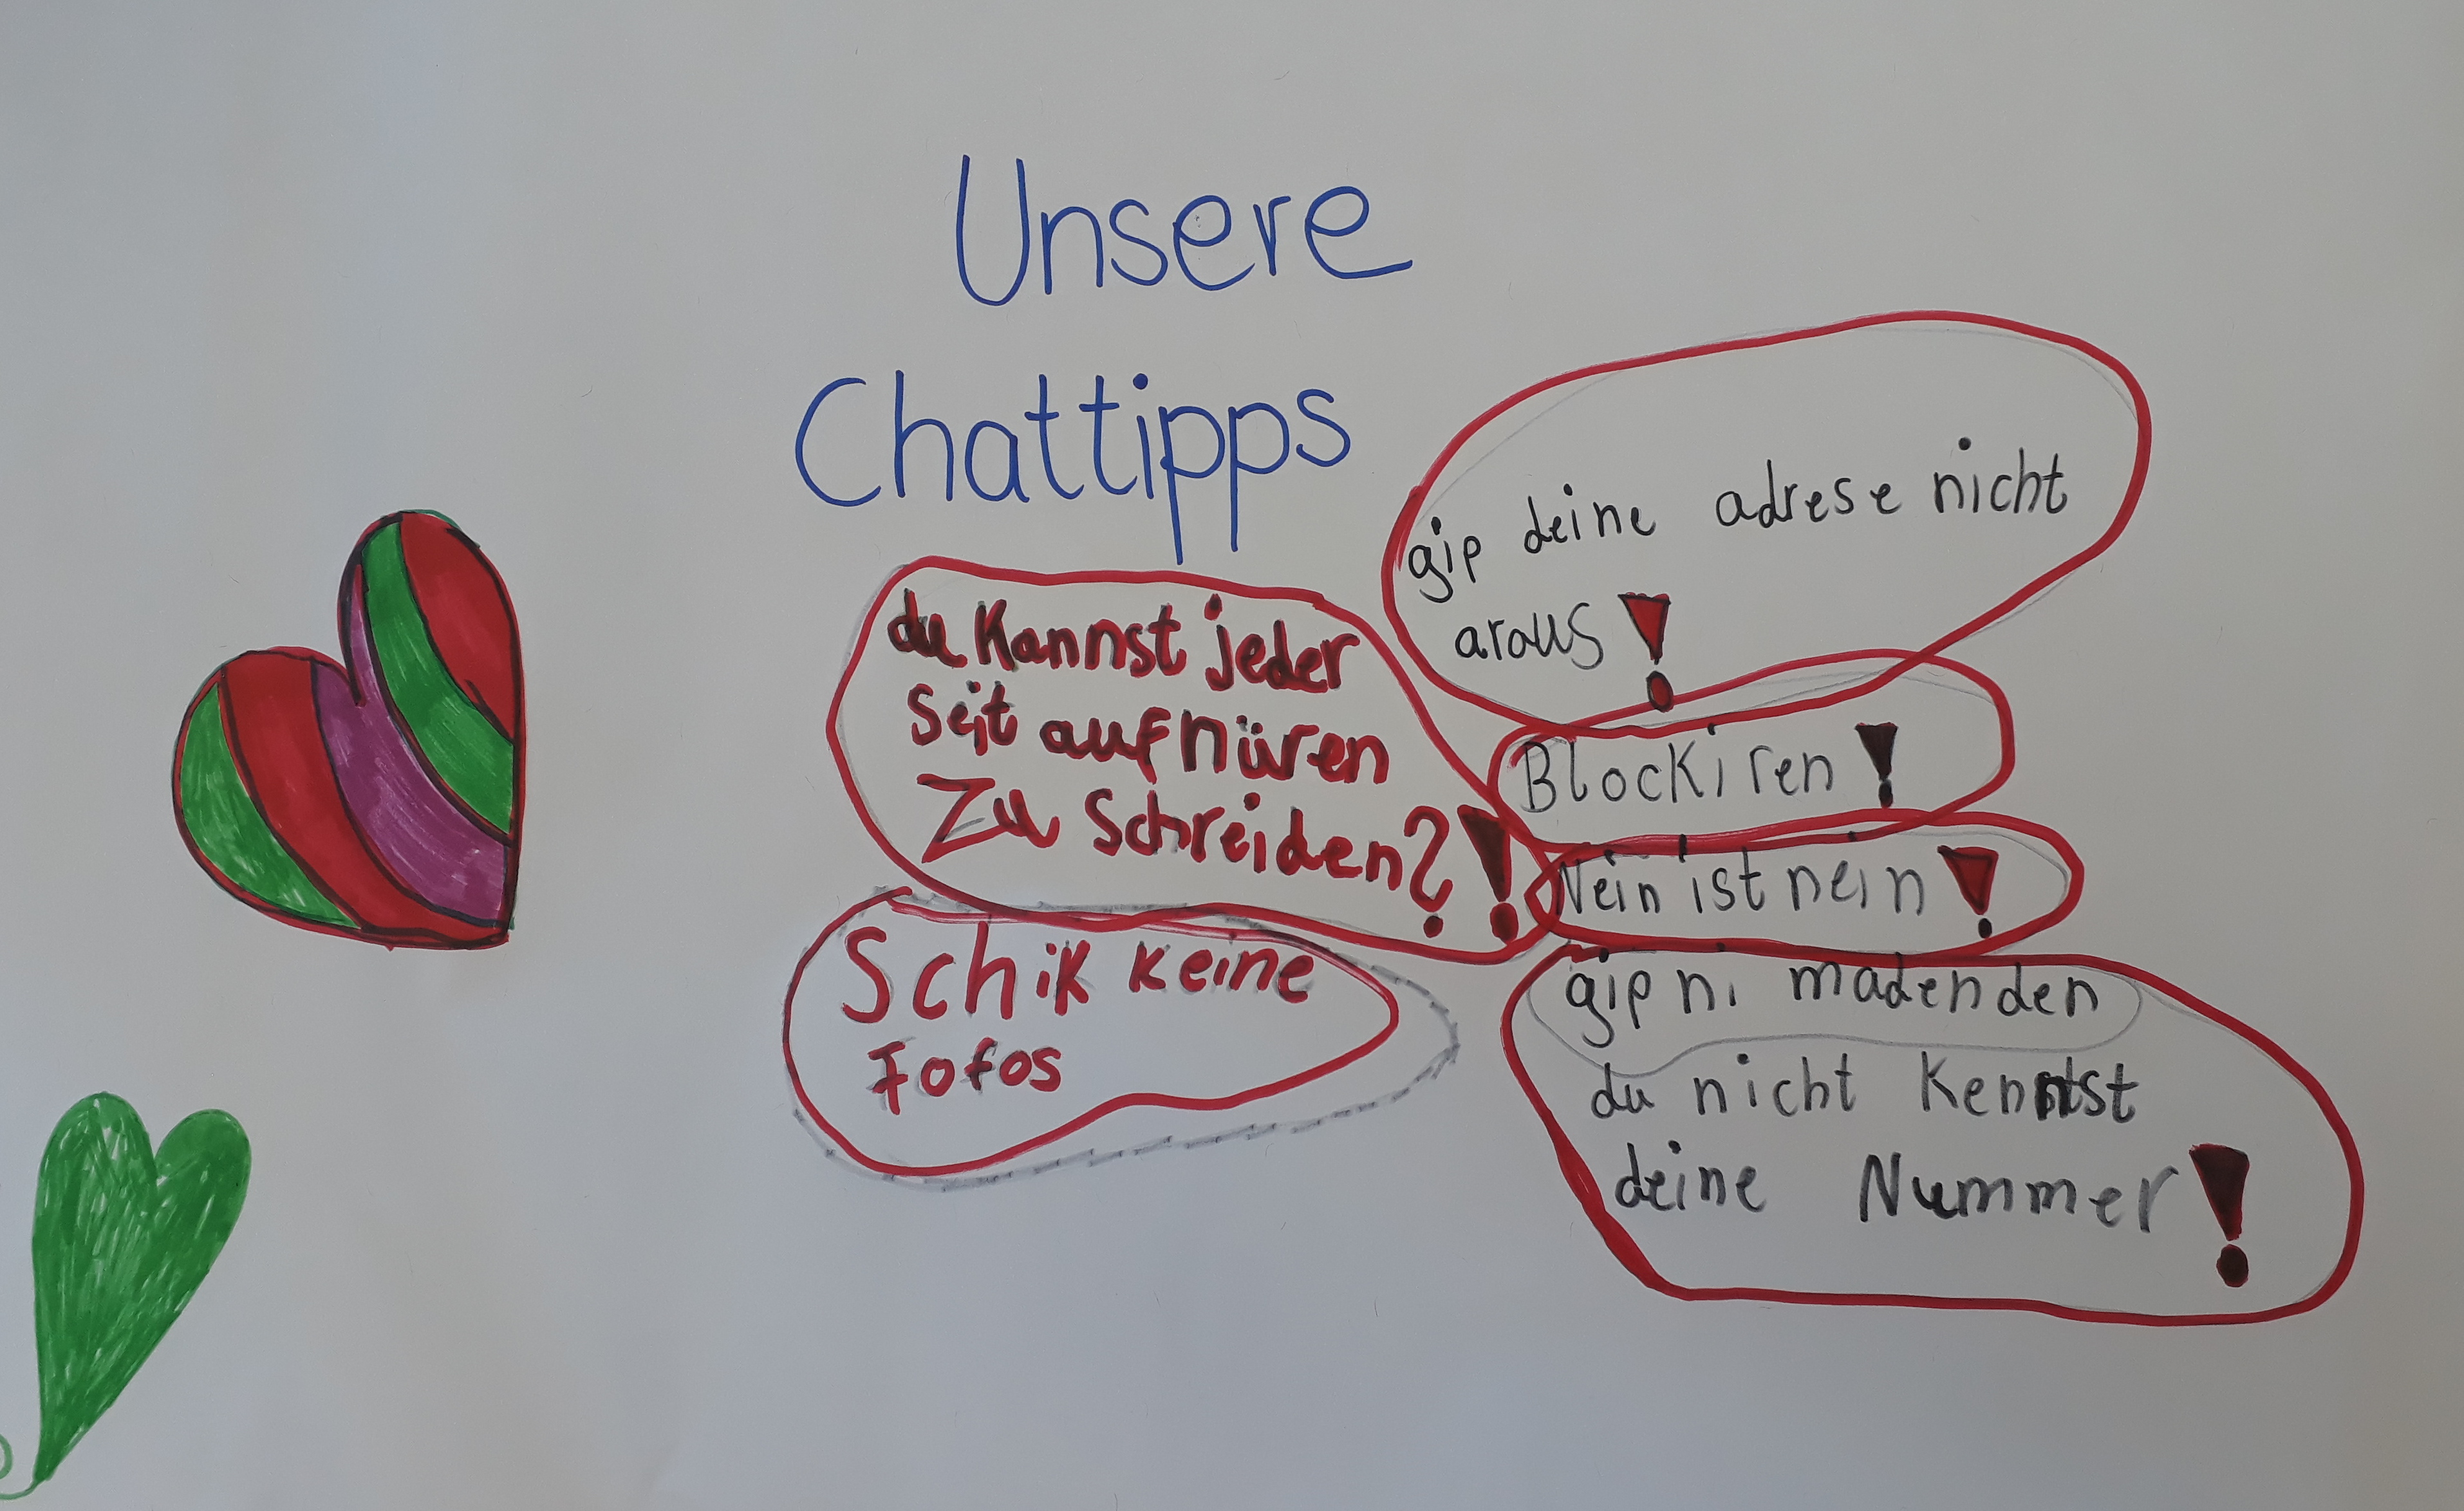 Unsere
Chattipps
gip deine adrese nicht
araus!
du kannst jeder
seit aufhüren
zu schreiden?!
Blockiren!
Nein ist nein!
Schik keine
Fofos
gip ni madenden
du nicht kennst
deine Nummer!